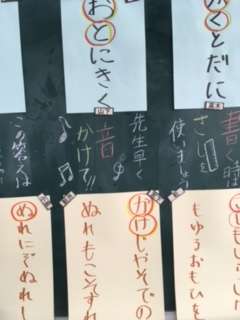 かくとだに
おとにきく
書く時は
さしを
使いましょう
先生早く
音
かけて!!
この答えは
もゆるおもひを
かけじやそでの
ぬれもこそすれ
ぬれにぞぬれし